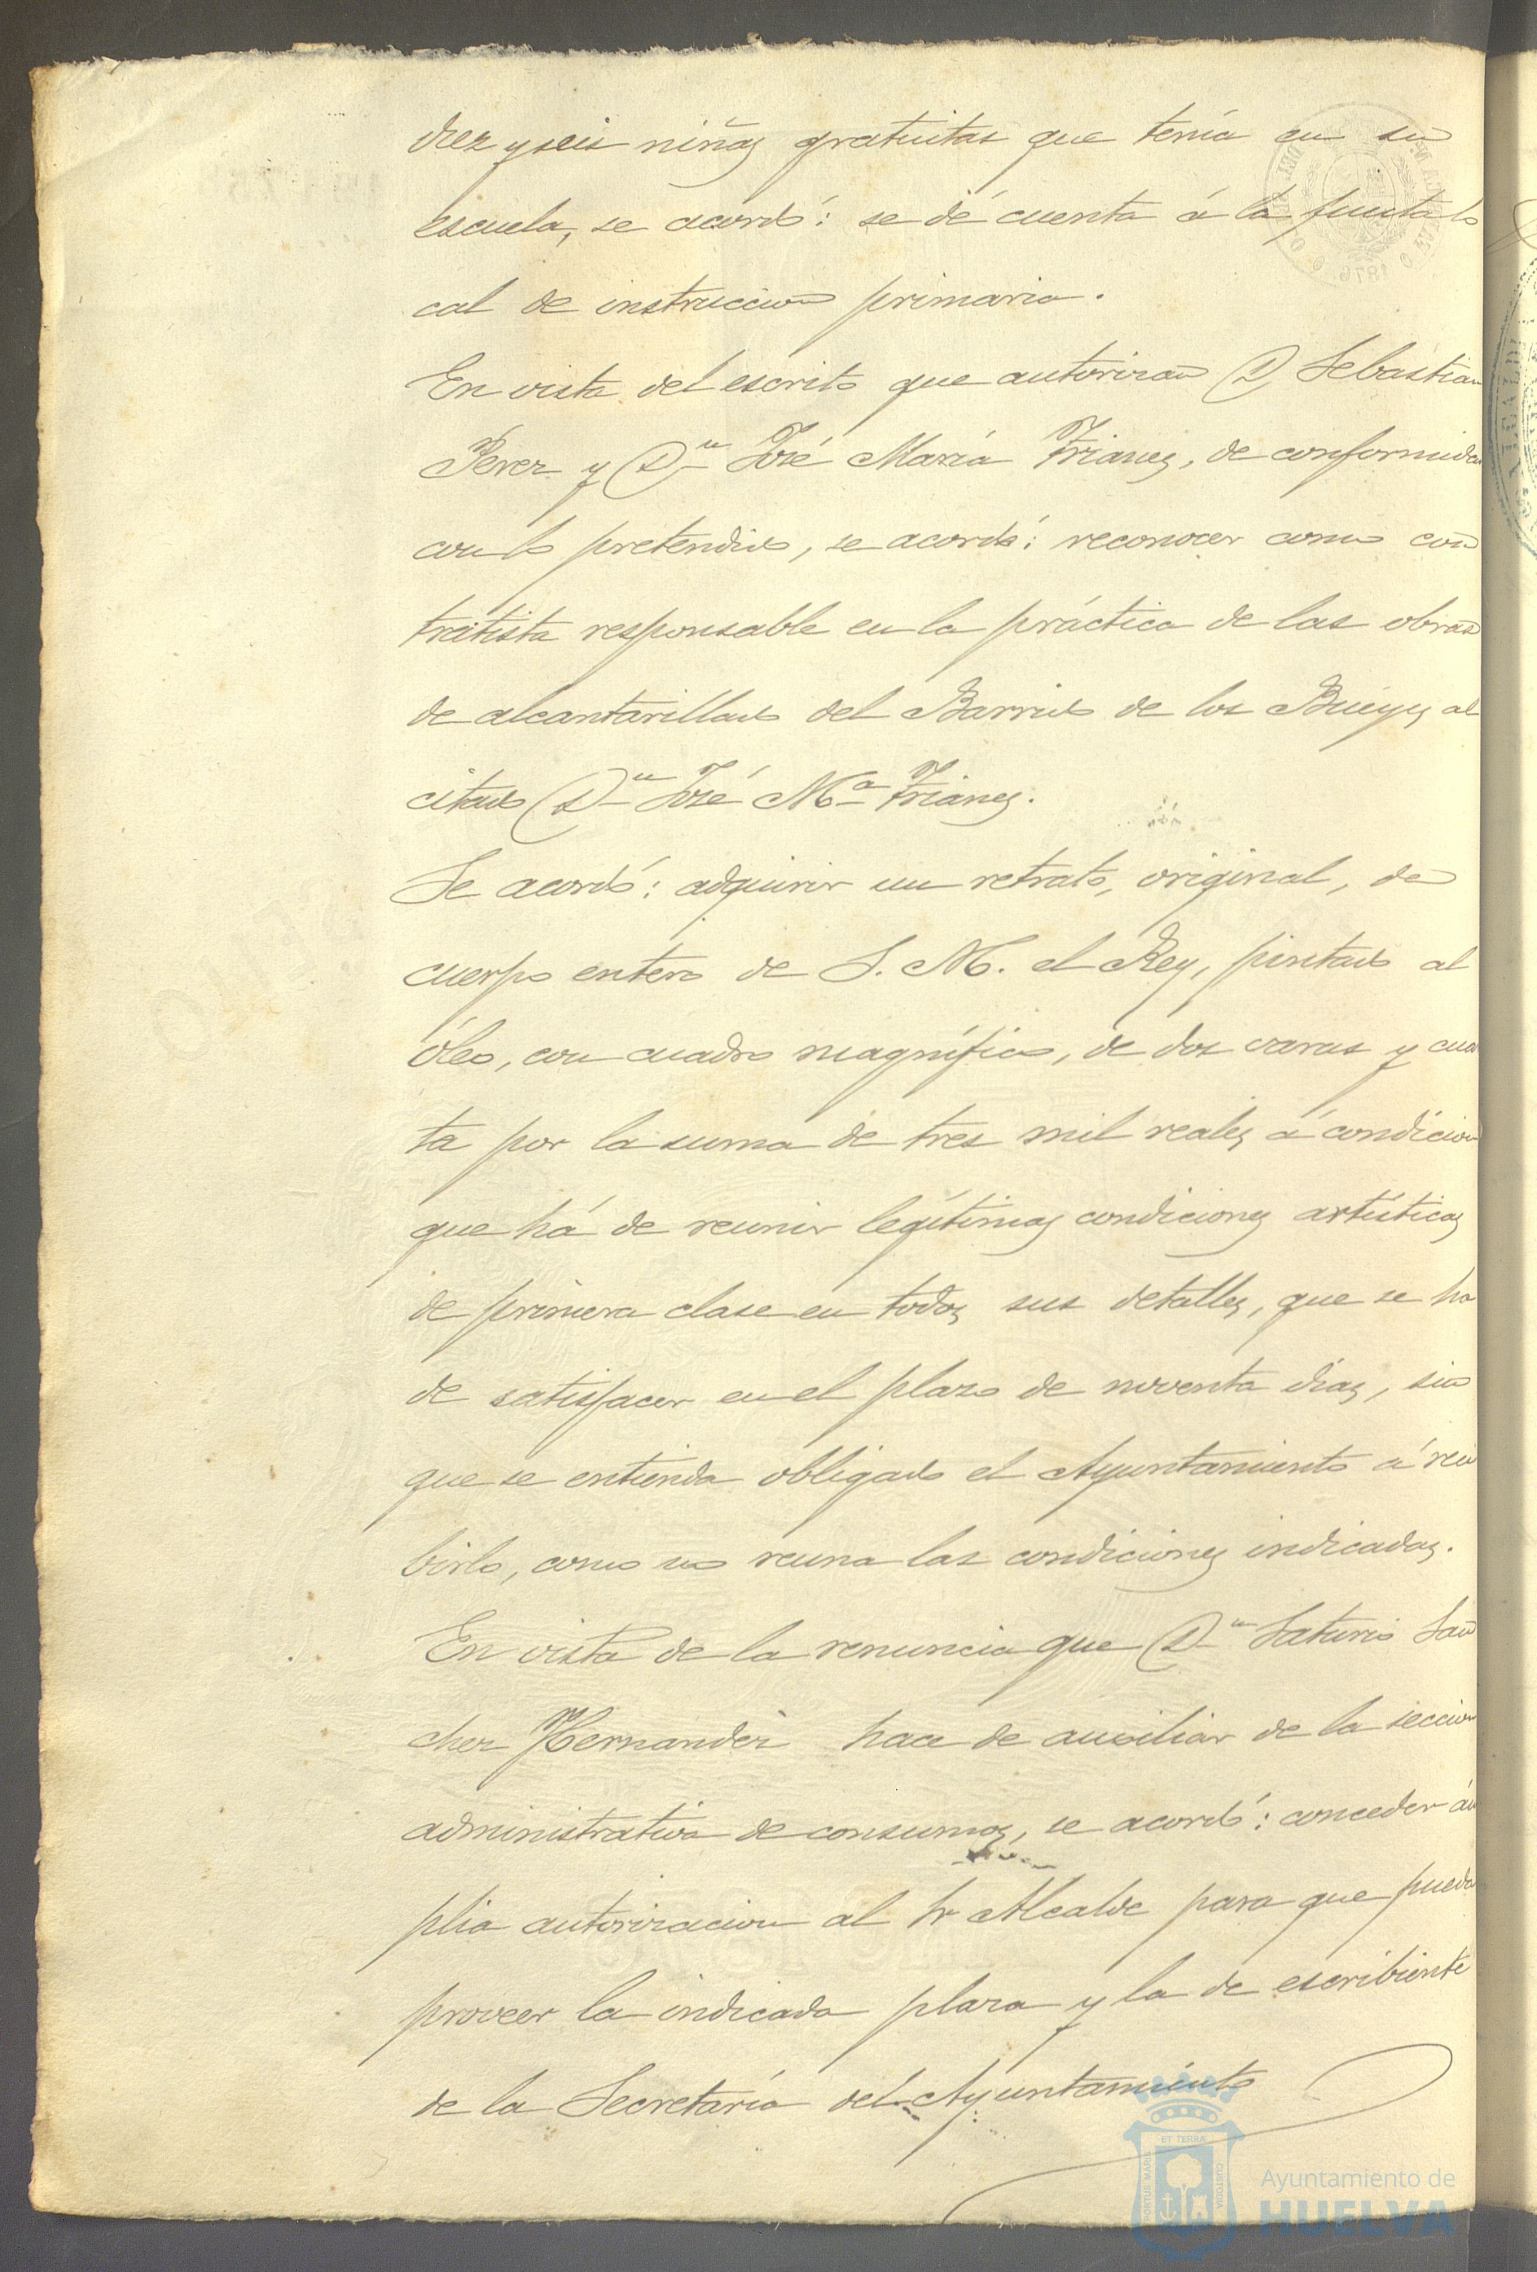 diez y seis niñas gratuitas que tenía en su
escuela, se acordó: se dé cuenta á la Junta lo
cal de instruccion primaria.
En vista del escrito que autorizan D Sebastian
Perez y Dn José María Trianes, de conformidad
con lo pretendido, se acordó: reconocer como con
tratista responsable en la práctica de las obras
de alcantarillado del Barrio de los Bueyes al
citado Dn José Ma Trianes.
Se acordó: adquirir un retrato, original, de
cuerpo entero de S. M. el Rey, pintado al
óleo, con cuadro magnífico, de dos varas y cuar
ta por la suma de tres mil reales á condicion
que há de reunir legítimas condiciones artísticas
de primera clase en todos sus detalles, que se ha
de satisfacer en el plazo de noventa días, sin
que se entienda obligado el Ayuntamiento á reci
birlo, como no reuna las condiciones indicadas.
En vista de la renuncia que Dn Saturio San
chez Hernandez hace de auxiliar de la seccion
administrativa de consumos, se acordó: conceder ám
plia autorizacion al Sr Alcalde para que pueda
proveer la indicada plaza y la de escribiente
de la Secretaría del Ayuntamiento
Ayuntamiento de
HUELVA
1876
ET TERRA
CUSTODIA